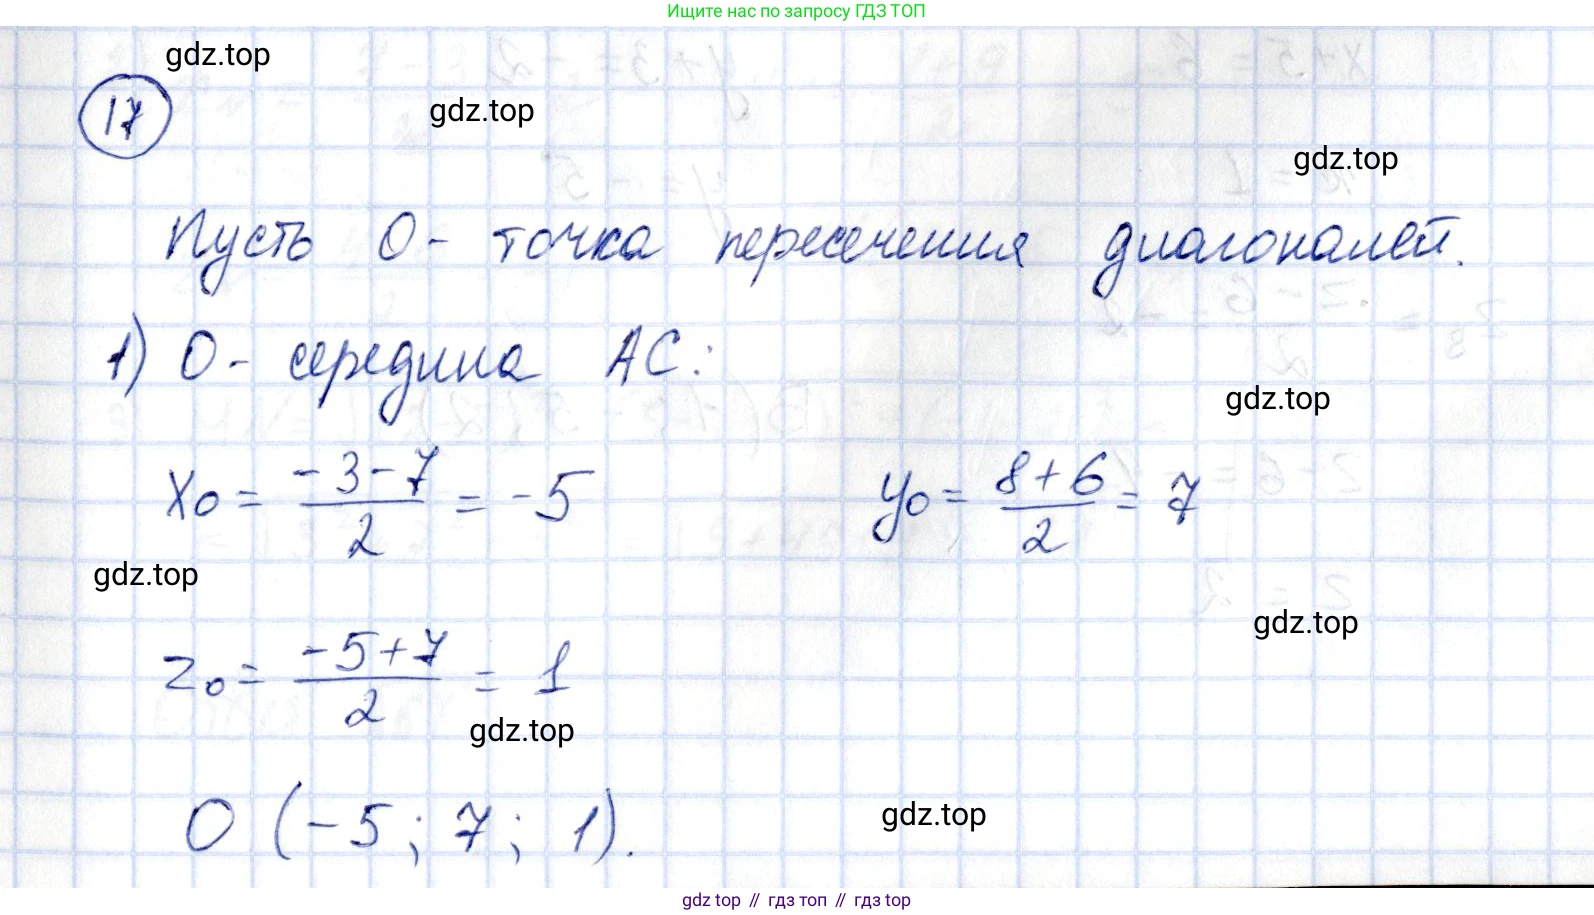 Ищите нас по запросу ГДЗ ТОП
gdz.top
17
gdz.top
gdz.top
Пусть О - точка пересечения диагоналей.
1) О - середина АС:
gdz.top
x₀ = (-3-7)/2 = -5 y₀ = (8+6)/2 = 7
gdz.top
gdz.top
z₀ = (-5+7)/2 = 1
gdz.top
О (-5; 7; 1).
gdz.top
gdz top // гдз топ // гдз top